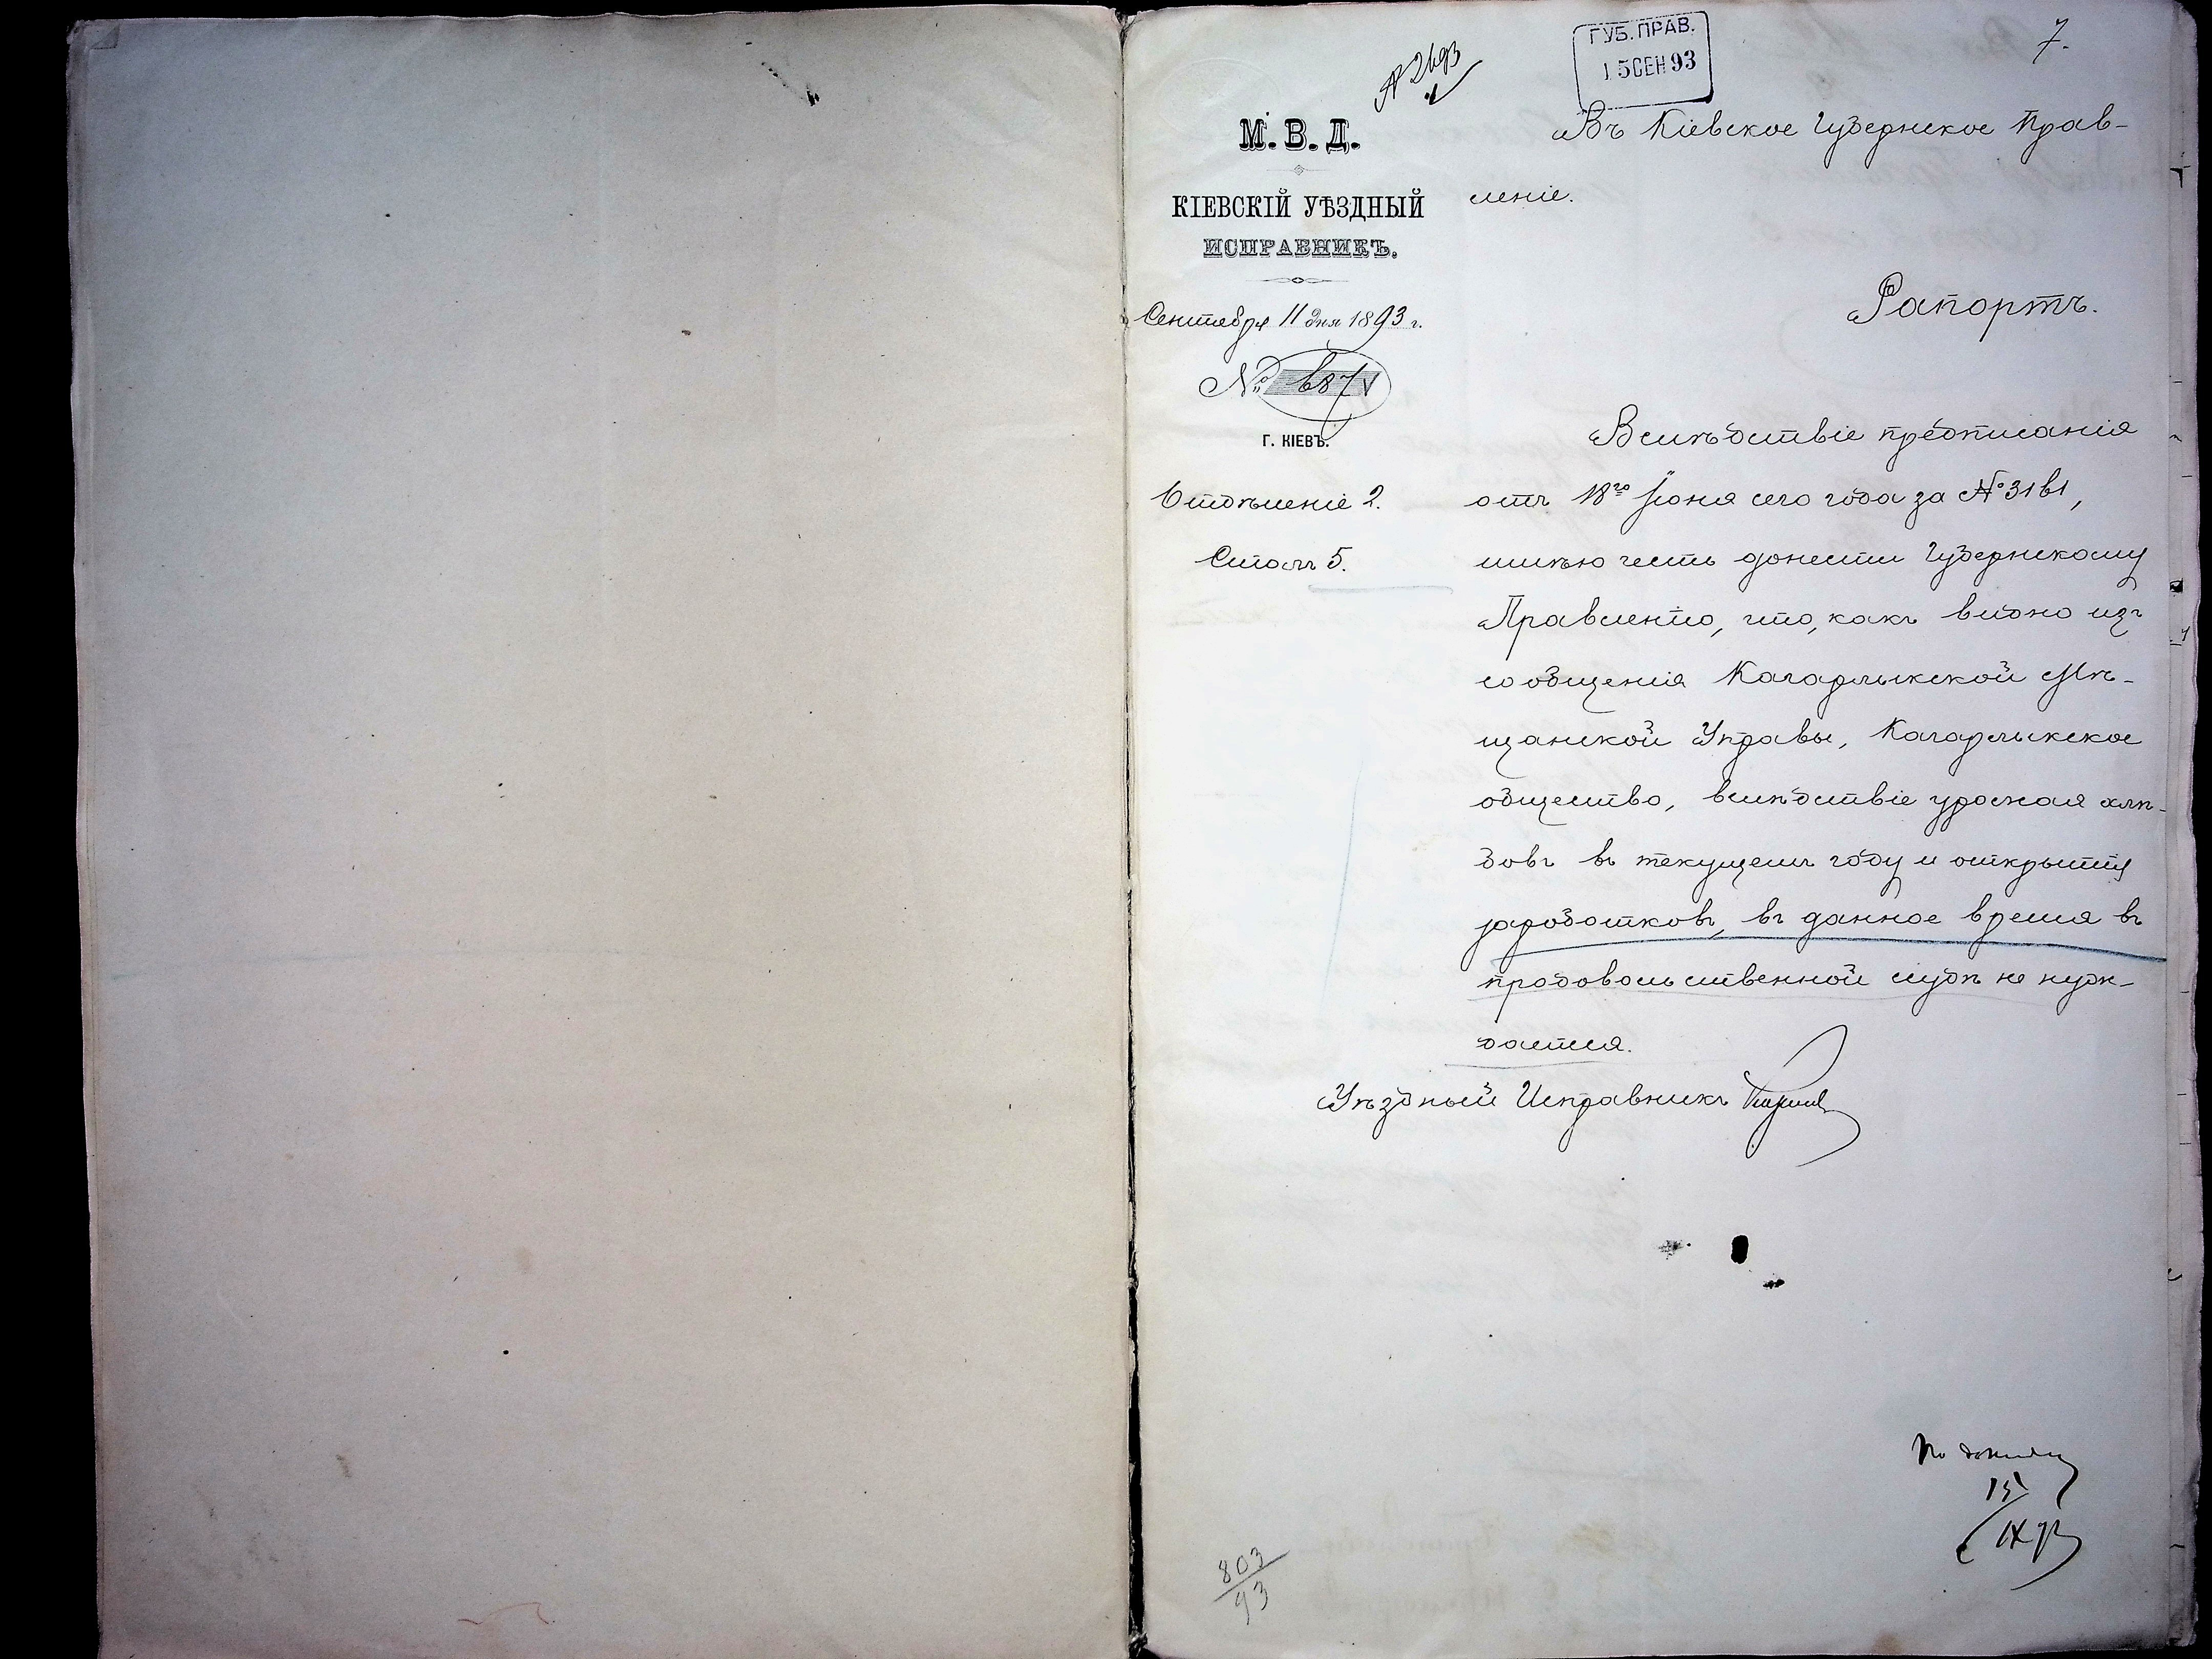 № 2693
ГУБ. ПРАВ.
15 СЕН 93
7.
М. В. Д.
КІЕВСКІЙ УѢЗДНЫЙ
ИСПРАВНИКЪ.
Сентября 11 дня 1893 г.
№ 6871
Г. КІЕВЪ.
Отдѣленіе 2.
Столъ 5.
Въ Кіевское Губернское Прав-
леніе.
Рапортъ.
Вслѣдствіе предписанія
отъ 18го Іюня сего года за № 3161,
имѣю честь донести Губернскому
Правленію, что, какъ видно изъ
сообщенія Кагарлыкской Мѣ-
щанской Управы, Кагарлыкское
общество, вслѣдствіе урожая хлѣ-
бовъ въ текущемъ году и открытія
заработковъ, въ данное время въ
продовольственной ссудѣ не нуж-
дается.
Уѣздный Исправникъ
15/IX 93
803/93